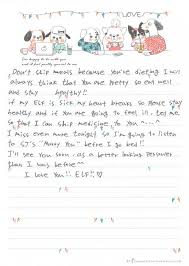 LOVE
Don't skip meals because you're dieting I will
always think that you are pretty so eat well
and stay healthy!!
if my ELF is sick my heart breaks so please stay
healthy and if you are going to feel ill, let me
so that I can ship medicine to you ^---^
I miss even more tonight so I'm going to listen
to SJ's "Marry You" before I go to bed!!
I'll see you soon as a better looking
than I was before ^^
I love you!! ELF!! ♡